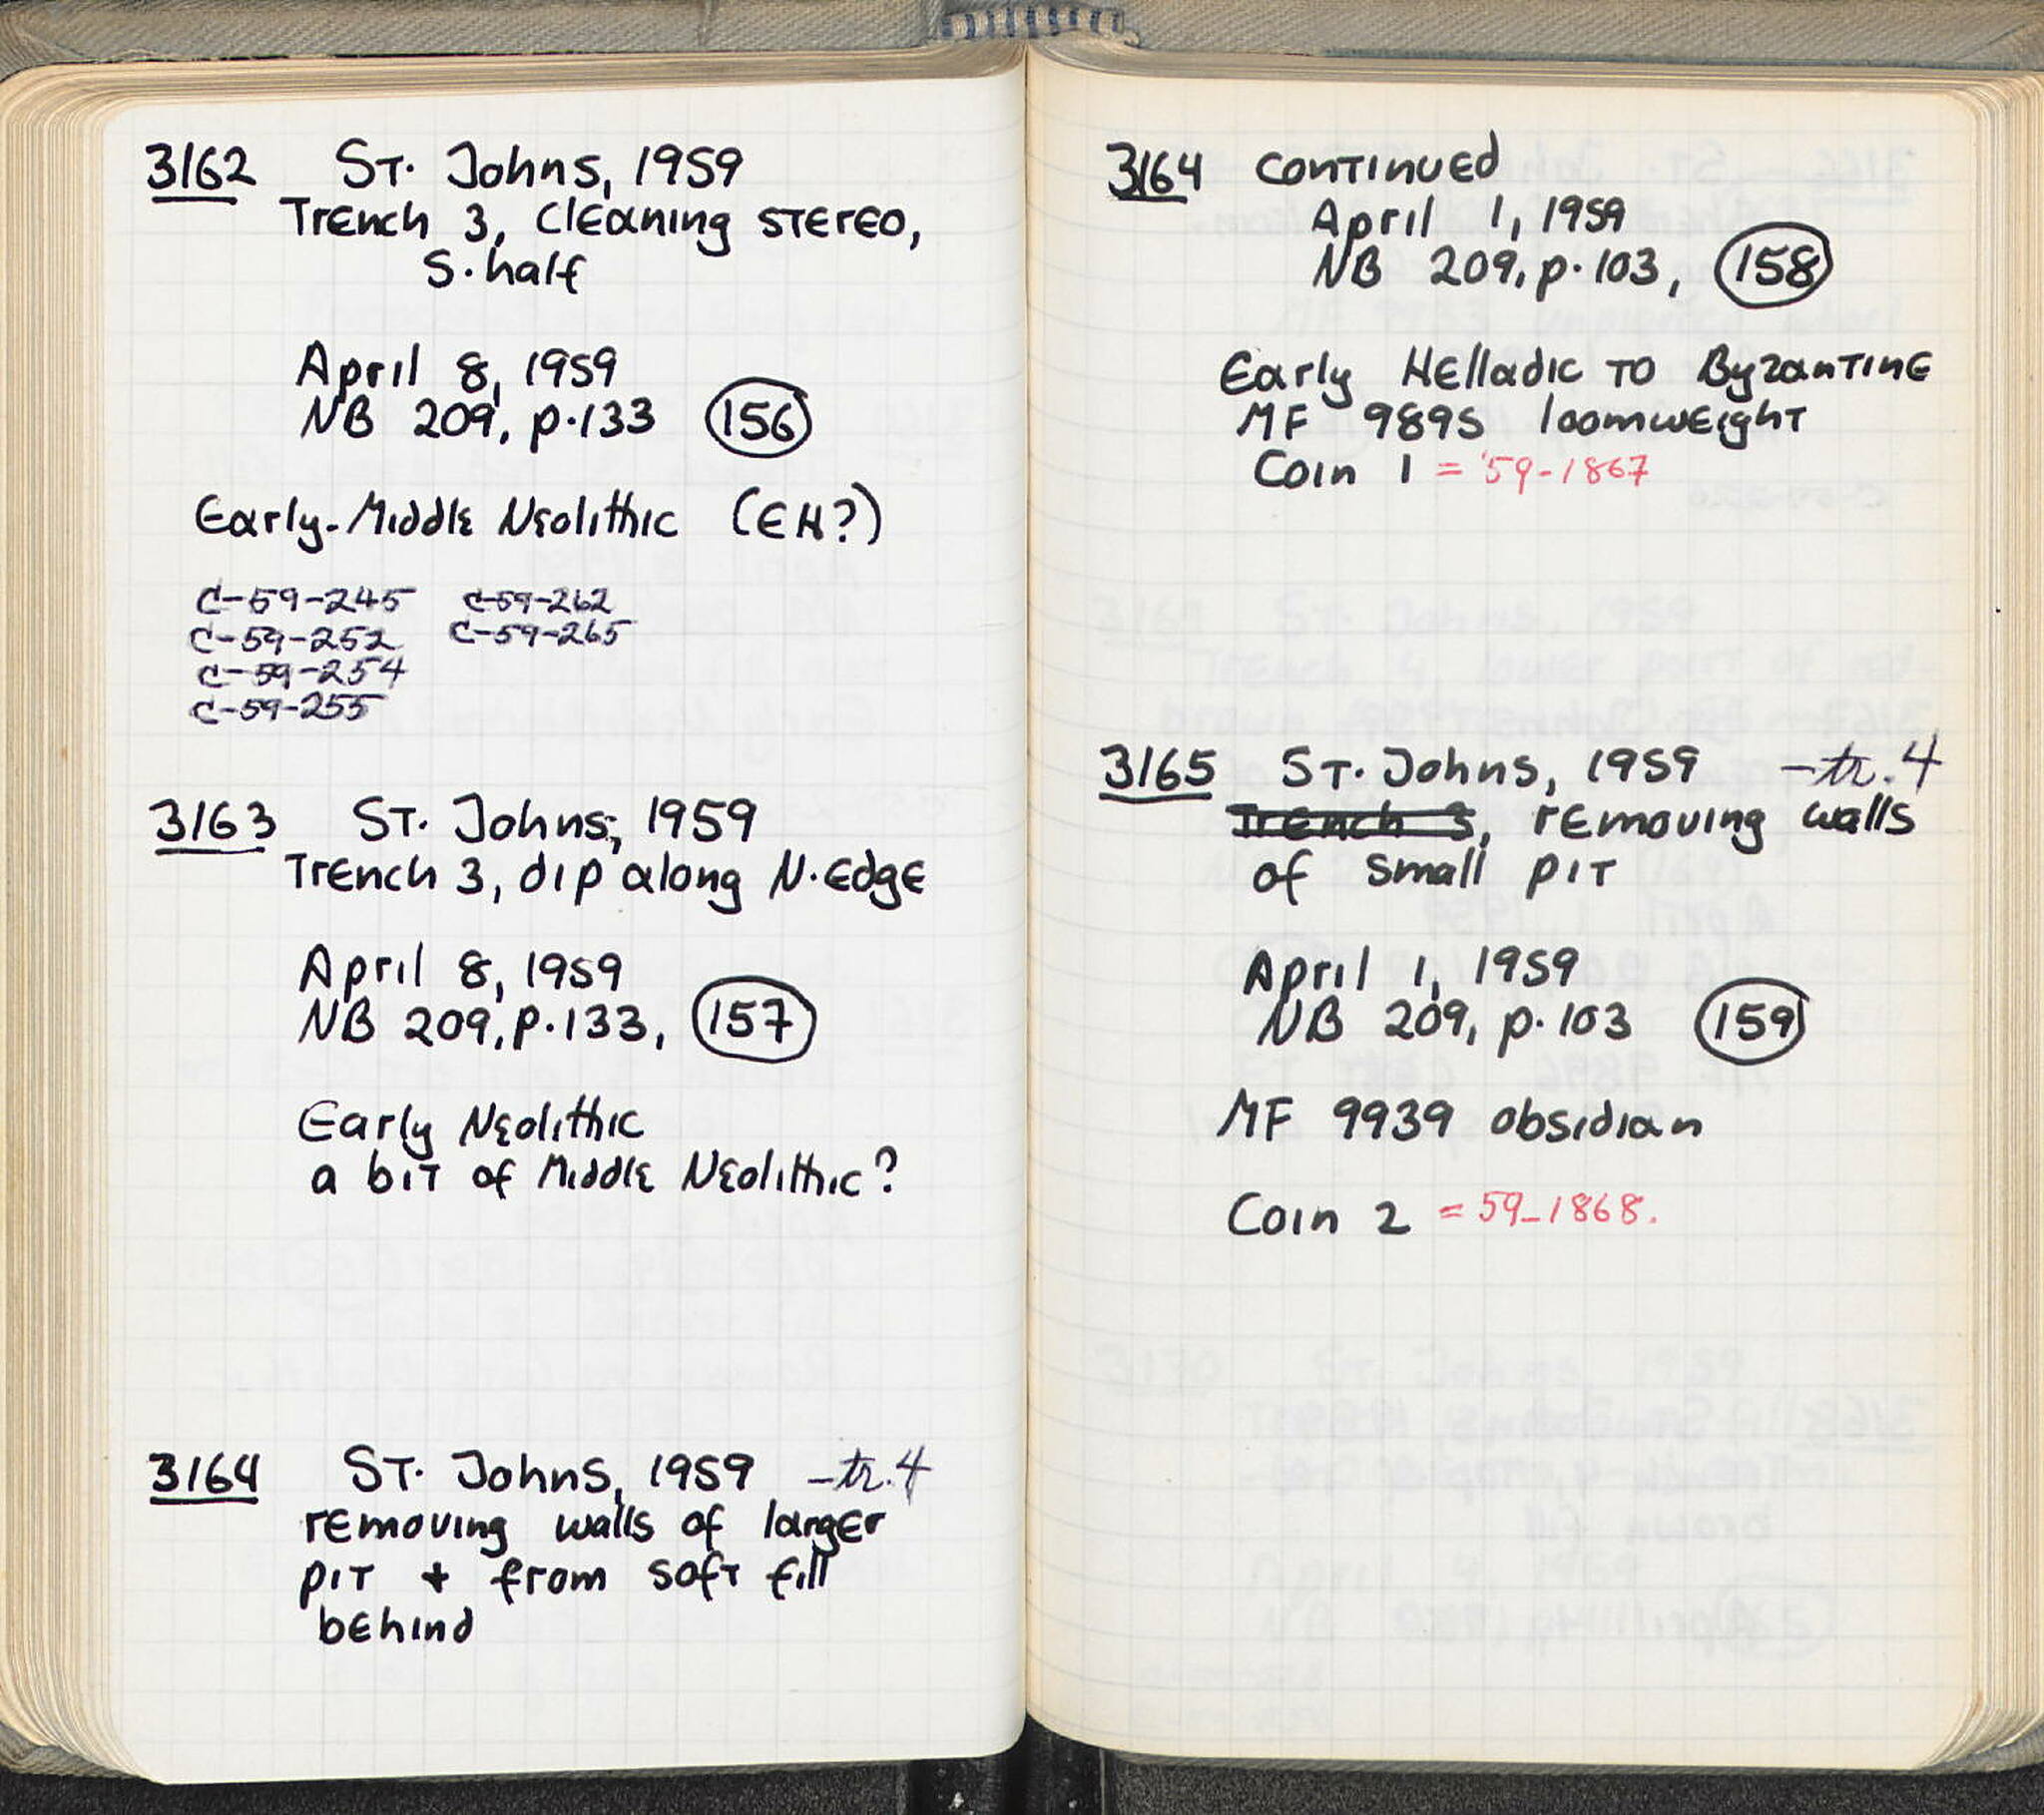 3162 St. Johns, 1959
Trench 3, cleaning stereo,
S. half
April 8, 1959
NB 209, p. 133 156
Early-Middle Neolithic (EH?)
C-59-245 C-59-262
C-59-252 C-59-265
C-59-254
C-59-255
3163 St. Johns, 1959
Trench 3, dip along N. Edge
April 8, 1959
NB 209, p. 133, 157
Early Neolithic
a bit of Middle Neolithic?
3164 St. Johns, 1959 -tr. 4
removing walls of larger
pit + from soft fill
behind
3164 continued
April 1, 1959
NB 209, p. 103, 158
Early Helladic to Byzantine
MF 9895 loomweight
Coin 1 = '59-1867
3165 St. Johns, 1959 -tr. 4
Trench 3, removing walls
of small pit
April 1, 1959
NB 209, p. 103 159
MF 9939 obsidian
Coin 2 = 59-1868.